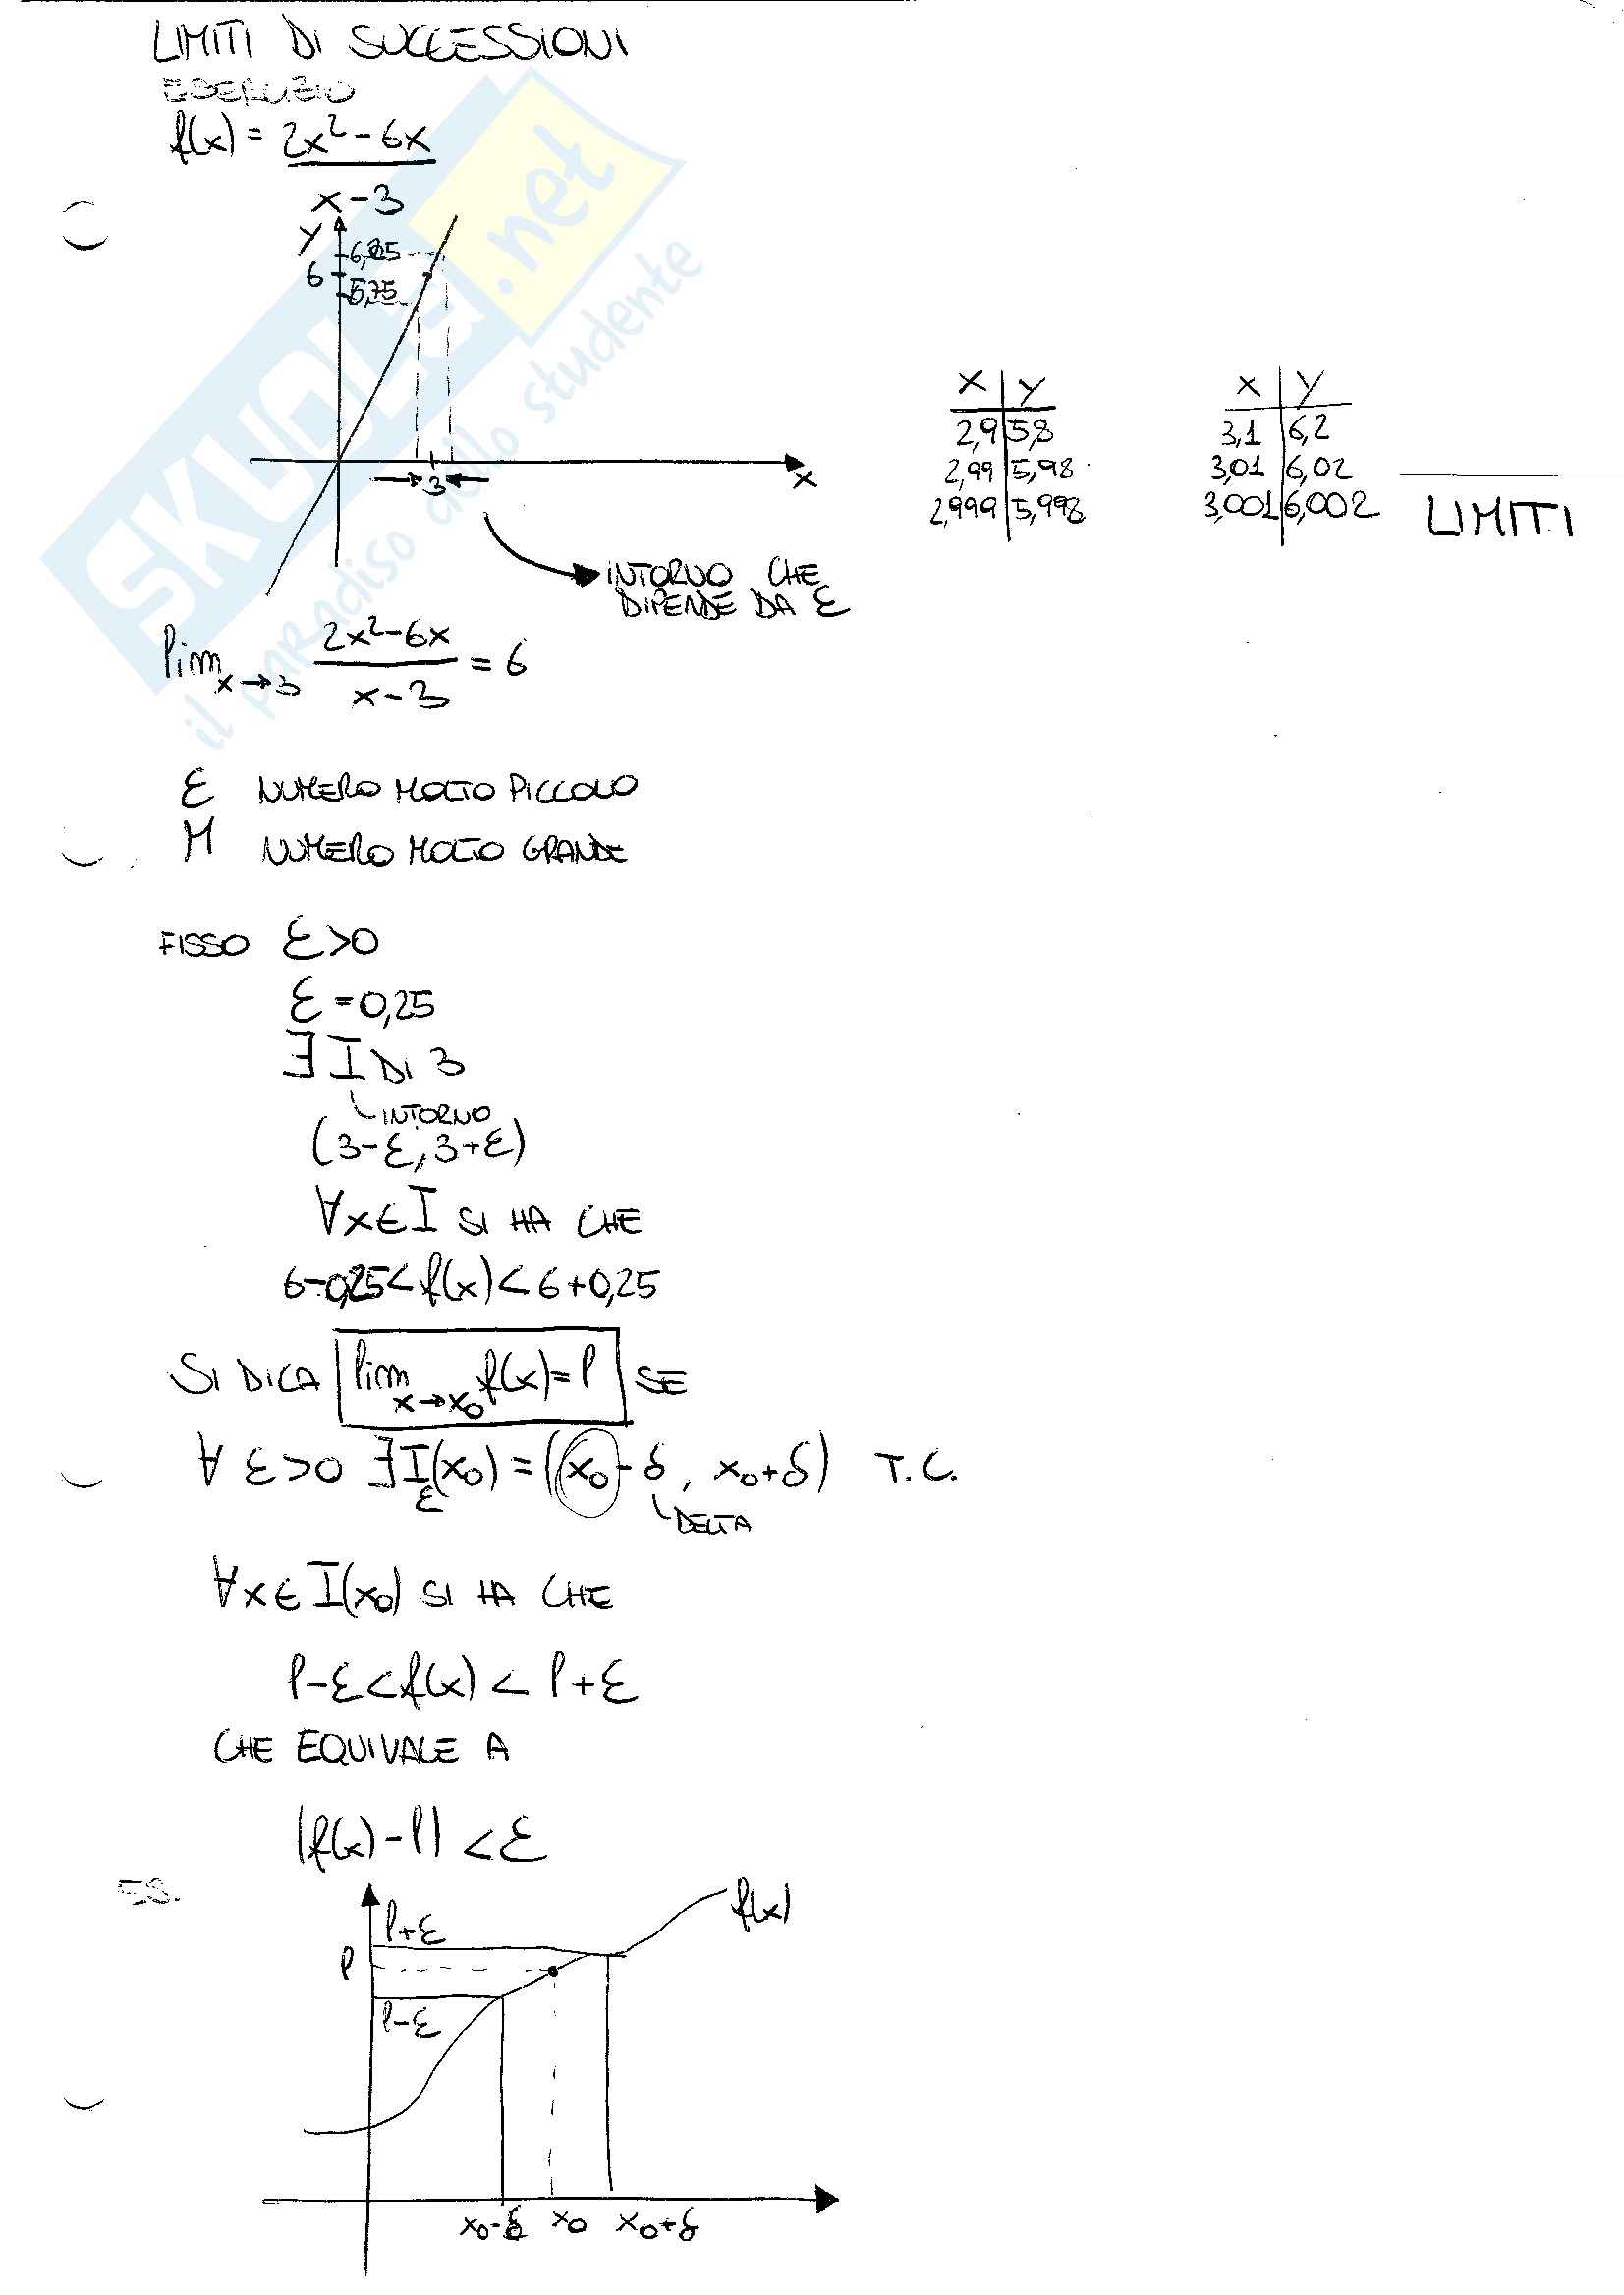 LIMITI DI SUCCESSIONI
ESERCIZIO
f(x) = 2x² - 6x
x - 3
y
6,25
6
5,75
3
x
INTORNO CHE
DIPENDE DA ε
x y
2,9 5,8
2,99 5,98
2,999 5,998
x y
3,1 6,2
3,01 6,02
3,001 6,002
LIMITI
lim x→3 2x²-6x / x-3 = 6
ε NUMERO MOLTO PICCOLO
M NUMERO MOLTO GRANDE
FISSO ε>0
ε = 0,25
∃ I DI 3
INTORNO
(3-ε, 3+ε)
∀x∈I SI HA CHE
6-0,25 < f(x) < 6+0,25
SI DICA lim x→x₀ f(x) = l SE
∀ ε>0 ∃ Iε(x₀) = (x₀-δ, x₀+δ) T.C.
DELTA
∀x∈I(x₀) SI HA CHE
l-ε < f(x) < l+ε
CHE EQUIVALE A
|f(x)-l| < ε
ES.
f(x)
l+ε
l
l-ε
x₀-δ x₀ x₀+δ
SKUOLA.net
il paradiso dello studente